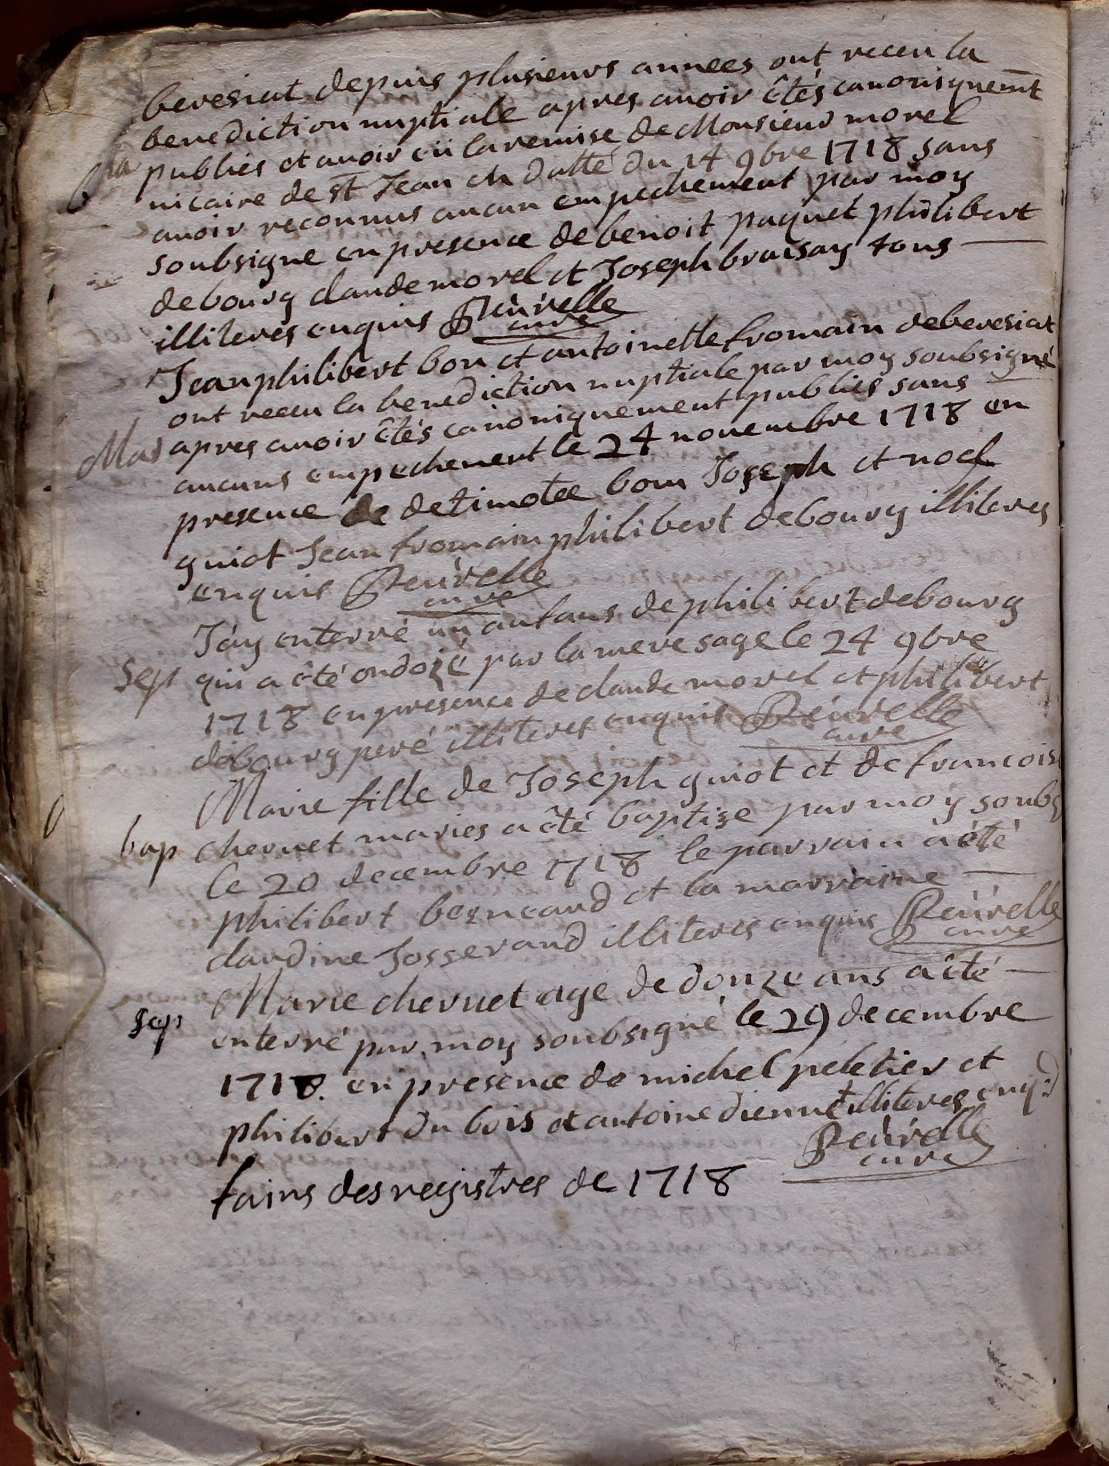 beveriat depuis plusieurs années ont receu la
benediction nuptiale apres avoir étés canoniquemt
publiés et avoir eü la remise de Monsieur morel
vicaire de st Jean en datte du 14 9bre 1718 sans
avoir reconnus aucun empechement par moy
soubsigne en presence de benoit paquet philibert
debourg claude morel et Joseph braisay tous
illiteres enquis Reuvelle
curé
Jean philibert bon et antoinette fromain de beveriat
ont receu la benediction nuptiale par moy soubsigné
Mar apres avoir étés canoniquement publiés sans
aucuns empechement le 24 novembre 1718 en
presence de de timotee bon Joseph et noel
guiot Jean fromain philibert debourg illiteres
enquis Reuvelle
curé
J'ay enterré un anfans de philibert debourg
Sep qui a été ondoié par la mere sage le 24 9bre
1718 en presence de claude morel et philibert
debourg peré illiteres enquis Reuvelle
curé
Marie fille de Joseph guiot et de francois
bap chervet mariés a été baptise par moy soubs
le 20 decembre 1718 le parrain a été
philibert besncand et la marraine
claudine Josserand illiteres enquis Reuvelle
curé
Marie chervet age de douze ans a été
Sep enterré par moy soubsigné le 29 decembre
1718 en presence de michel peletier et
philibert du bois et antoine dienne illiteres enq:s
Reuvelle
curé
fains des registres de 1718